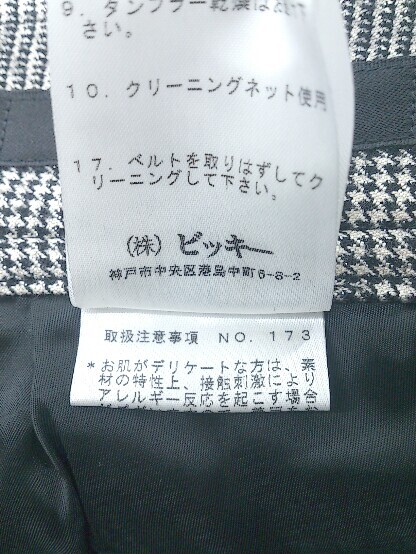 9．タンブラー乾燥はお避け下
さい。
10．クリーニングネット使用
17．ベルトを取りはずしてク
リーニングして下さい。
（株）ビッキー
神戸市中央区港島中町6-8-2
取扱注意事項 NO. 173
*お肌がデリケートな方は、素
材の特性上、接触刺激により
アレルギー反応を起こす場合